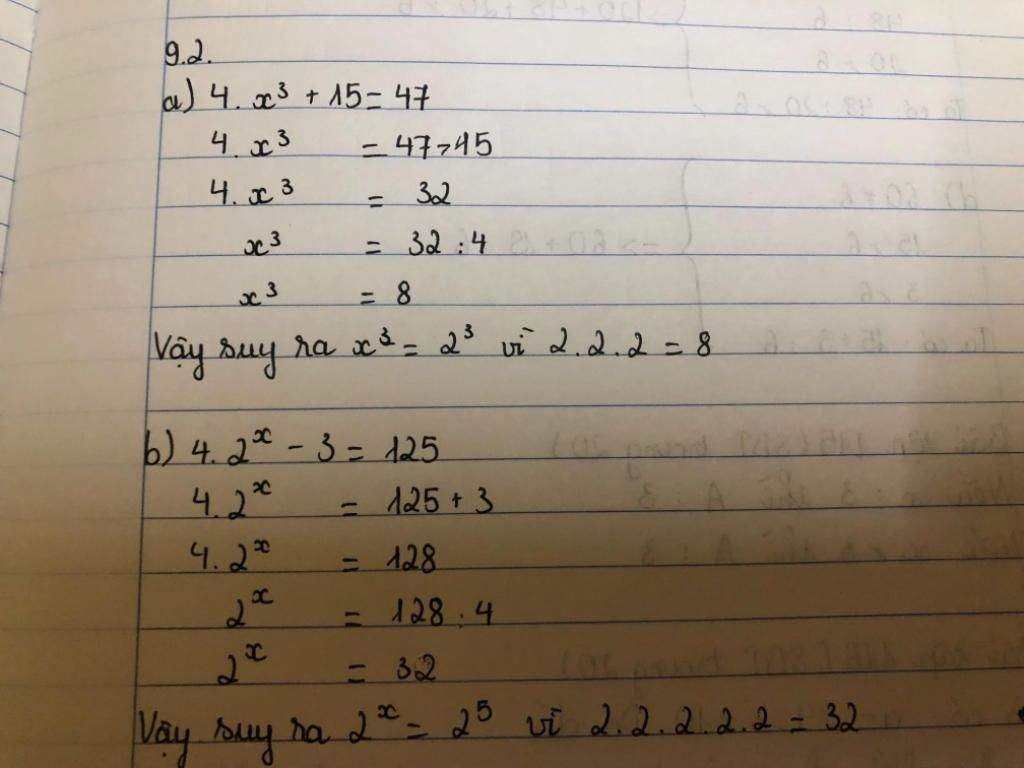 9.2.
a) 4. x³ + 15 = 47
4. x³ = 47 - 15
4. x³ = 32
x³ = 32 : 4
x³ = 8
Vậy suy ra x³ = 2³ vì 2.2.2 = 8
b) 4. 2ˣ - 3 = 125
4. 2ˣ = 125 + 3
4. 2ˣ = 128
2ˣ = 128 : 4
2ˣ = 32
Vậy suy ra 2ˣ = 2⁵ vì 2.2.2.2.2 = 32